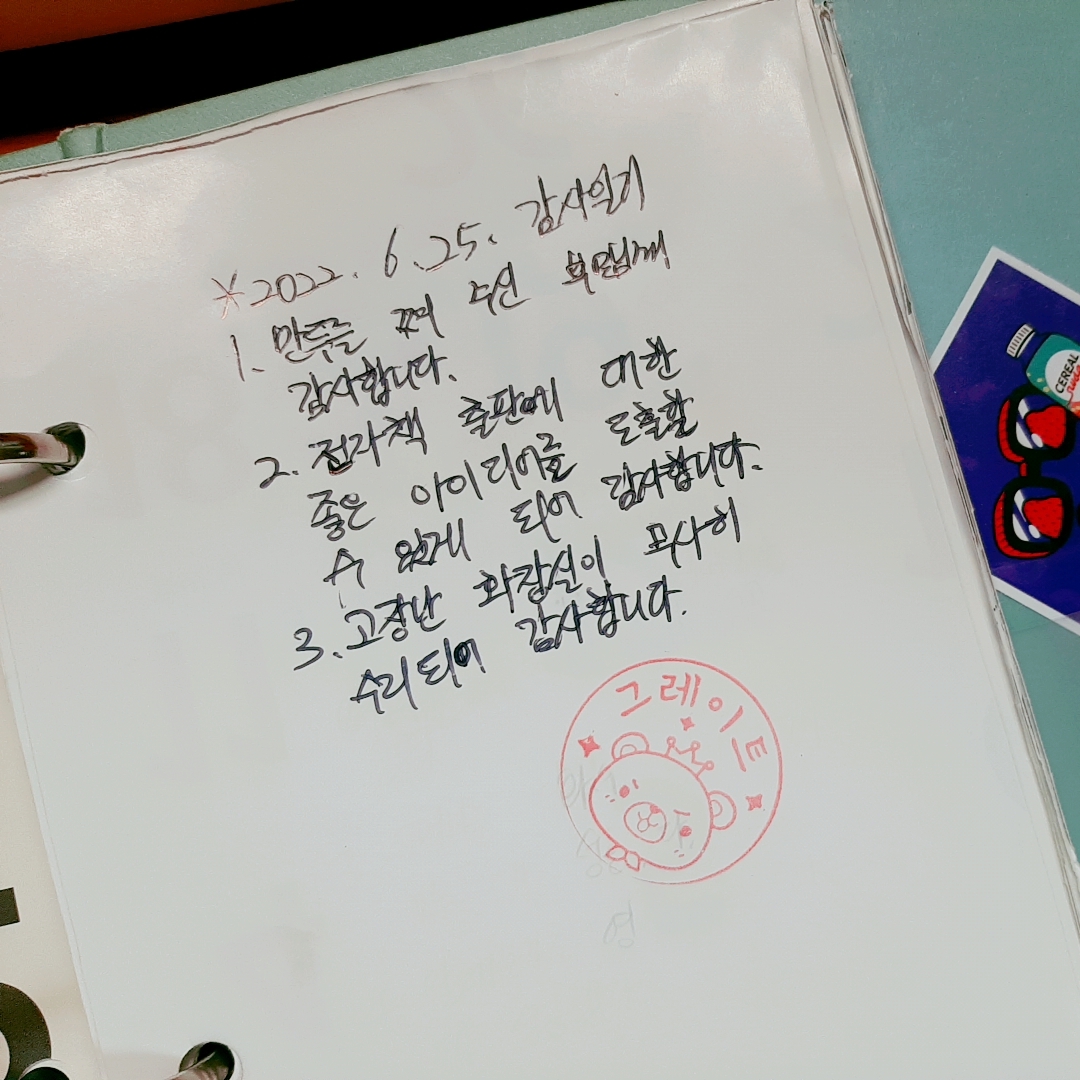 *2022. 6.25. 감사일기
1. 만두를 쪄 주신 부모님께
감사합니다.
2. 전자책 출판에 대한
좋은 아이디어를 도출할
수 있게 되어 감사합니다.
3. 고장난 화장실이 무사히
수리되어 감사합니다.
그레이트
CEREAL